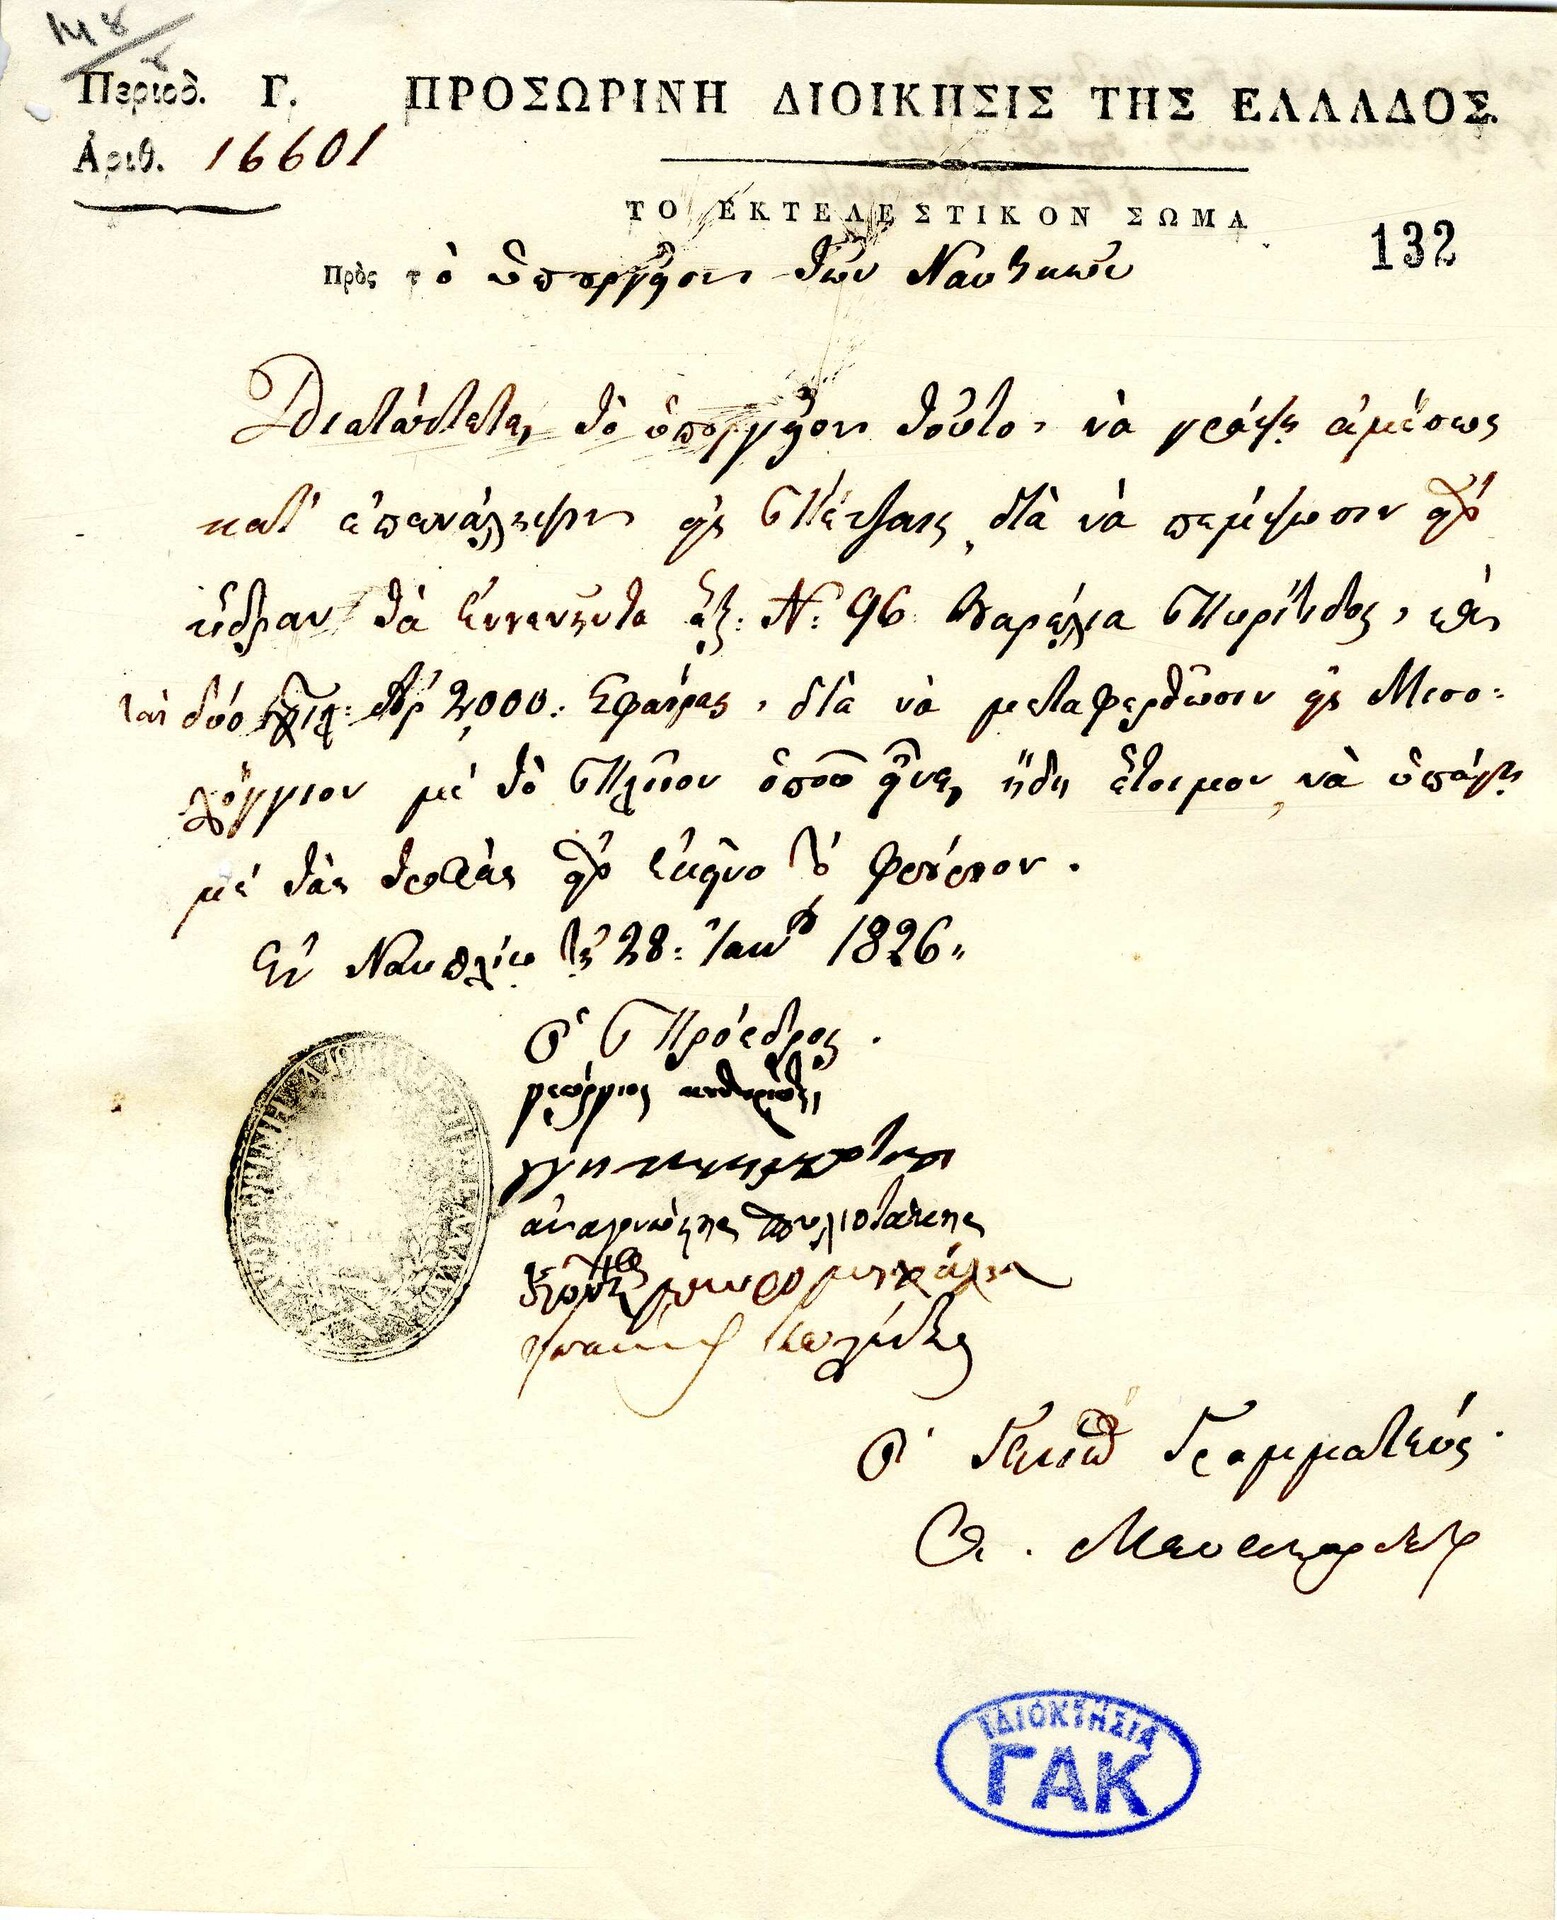 148
Περίοδ. Γ. ΠΡΟΣΩΡΙΝΗ ΔΙΟΙΚΗΣΙΣ ΤΗΣ ΕΛΛΑΔΟΣ.
Ἀριθ. 16601
ΤΟ ΕΚΤΕΛΕΣΤΙΚΟΝ ΣΩΜΑ
132
Πρὸς τὸ ὑπουργεῖον τῶν Ναυτικῶν
Διατάττεται τὸ ὑπουργεῖον τοῦτο, νὰ γράψῃ ἀμέσως
κατ' ἐπανάληψιν εἰς Πέτζαις διὰ νὰ πέμψωσιν ἐδῶ
τὰ ἐννενῆντα ἓξ: Ν: 96 βαρέλια πυρίτιδος,
δύο χιλ: Ἀρ 2,000: σφαίρας, διὰ νὰ μεταφερθῶσιν εἰς Μεσο:
λόγγιον μὲ τὸ πλοῖον ὁποῦ εἶναι ἤδη ἕτοιμον νὰ ὑπάγῃ
μὲ τὰς τροφὰς εἰς ἐκεῖνο τὸ φρούριον.
Ἐν Ναυπλίῳ τῇ 28: Ἰαν 1826
Ὁ Πρόεδρος.
γεώργιος κουντουριώτης
ἀναγνώστης σπηλιοτάκης
μαυρομιχάλης
Ὁ Γενικ Γραμματεύς
Α. Μαυροκορδάτος
ΙΔΙΟΚΤΗΣΙΑ
ΓΑΚ